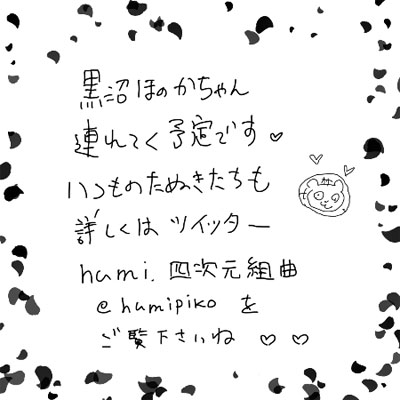 黒沼ほのかちゃん
連れてく予定です♡
いつものたぬきたちも
詳しくは ツイッター
hami. 四次元組曲
@hamipiko を
ご覧下さいね ♡ ♡